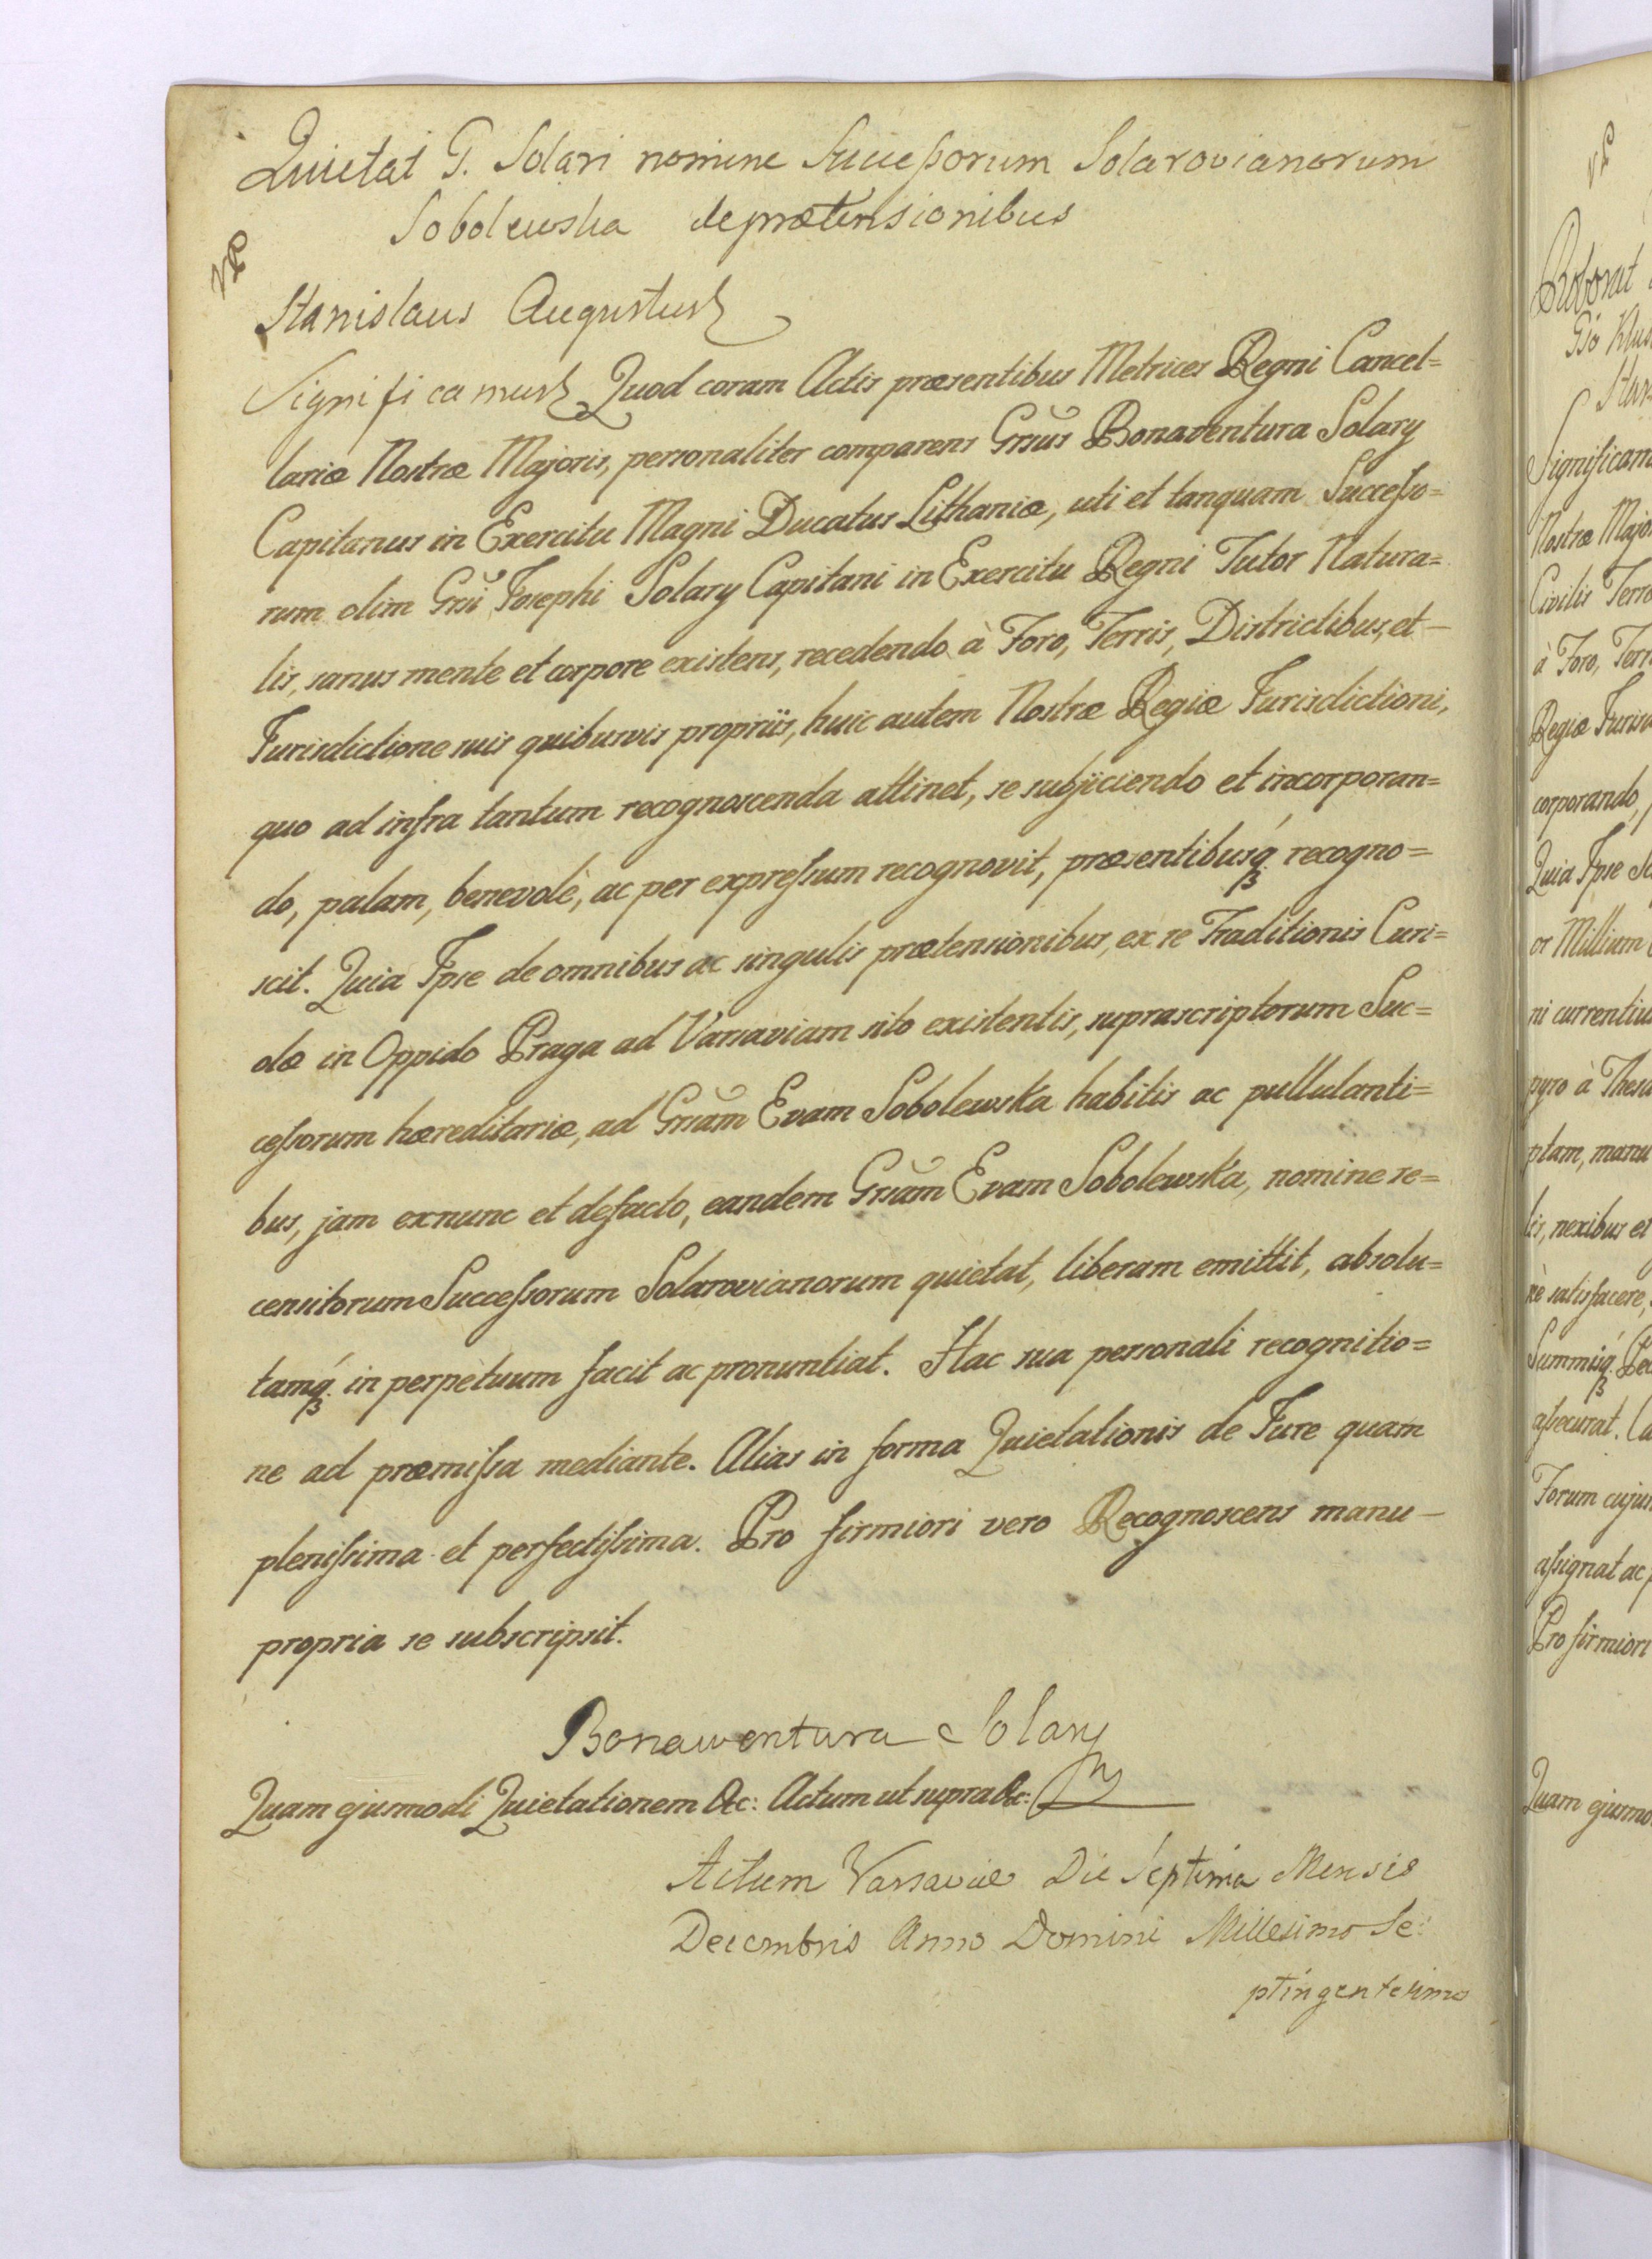 Quietat G. Solari nomine Successorum Solarovianorum
Sobolewska de prætensionibus
Stanislaus Augustus
Significamus Quod coram Actis præsentibus Metrices Regni Cancel=
lariæ Nostræ Majoris, personaliter comparens Grsus Bonaventura Solary
Capitanus in Exercitu Magni Ducatus Lithaniæ, uti et tanquam Successo=
rum olim Grsi Josephi Solary Capitani in Exercitu Regni Tutor Natura=
lis, sanus mente et corpore existens, recedendo à Foro, Terris, Districtibus, et –
Jurisdictione suis quibusvis propriis, huic autem Nostræ Regiæ Jurisdictioni,
quo ad infra tantum recognoscenda attinet, se subjiciendo et incorporan=
do, palam, benevolè, ac per expressum recognovit, præsentibusq́ recogno=
scit. Quia Ipse de omnibus ac singulis prætensionibus, ex re Traditionis Curi=
olæ in Oppido Praga ad Varsaviam sito existentis, suprascriptorum Suc=
cessorum hæreditariæ, ad Grsam Evam Sobolewska habitis ac pullulanti=
bus, jam exnunc et defacto, eandem Grsam Evam Sobolewska, nomine re=
censitorum Successorum Solarovianorum quietat, liberam emittit, absolu=
tamq́ in perpetuum facit ac pronuntiat. Hac sua personali recognitio=
ne ad præmissa mediante. Alias in forma Quietationis de Jure quam
plenissima et perfectissima. Pro firmiori vero Recognoscens manu –
propria se subscripsit.
Bonawentura Solary
Quam ejusmodi Quietationem &c: Actum ut supra &c:
Actum Varsaviæ Die Septima Mensis
Decembris Anno Domini Millesimo Se:
ptingentesimo
Roborat
Significam
Nostræ Majo
Civilis Terr
à Foro, Terr
Regiæ Juris
corporando,
Quia Ipse
or Millium
ni currentiu
pyro à Thes
ptam, manu
lis, nexibus et
rè satisfacere,
Summisq́
assecurat.
Forum cujus
assignat ac
Pro firmiori
Quam ejusmo